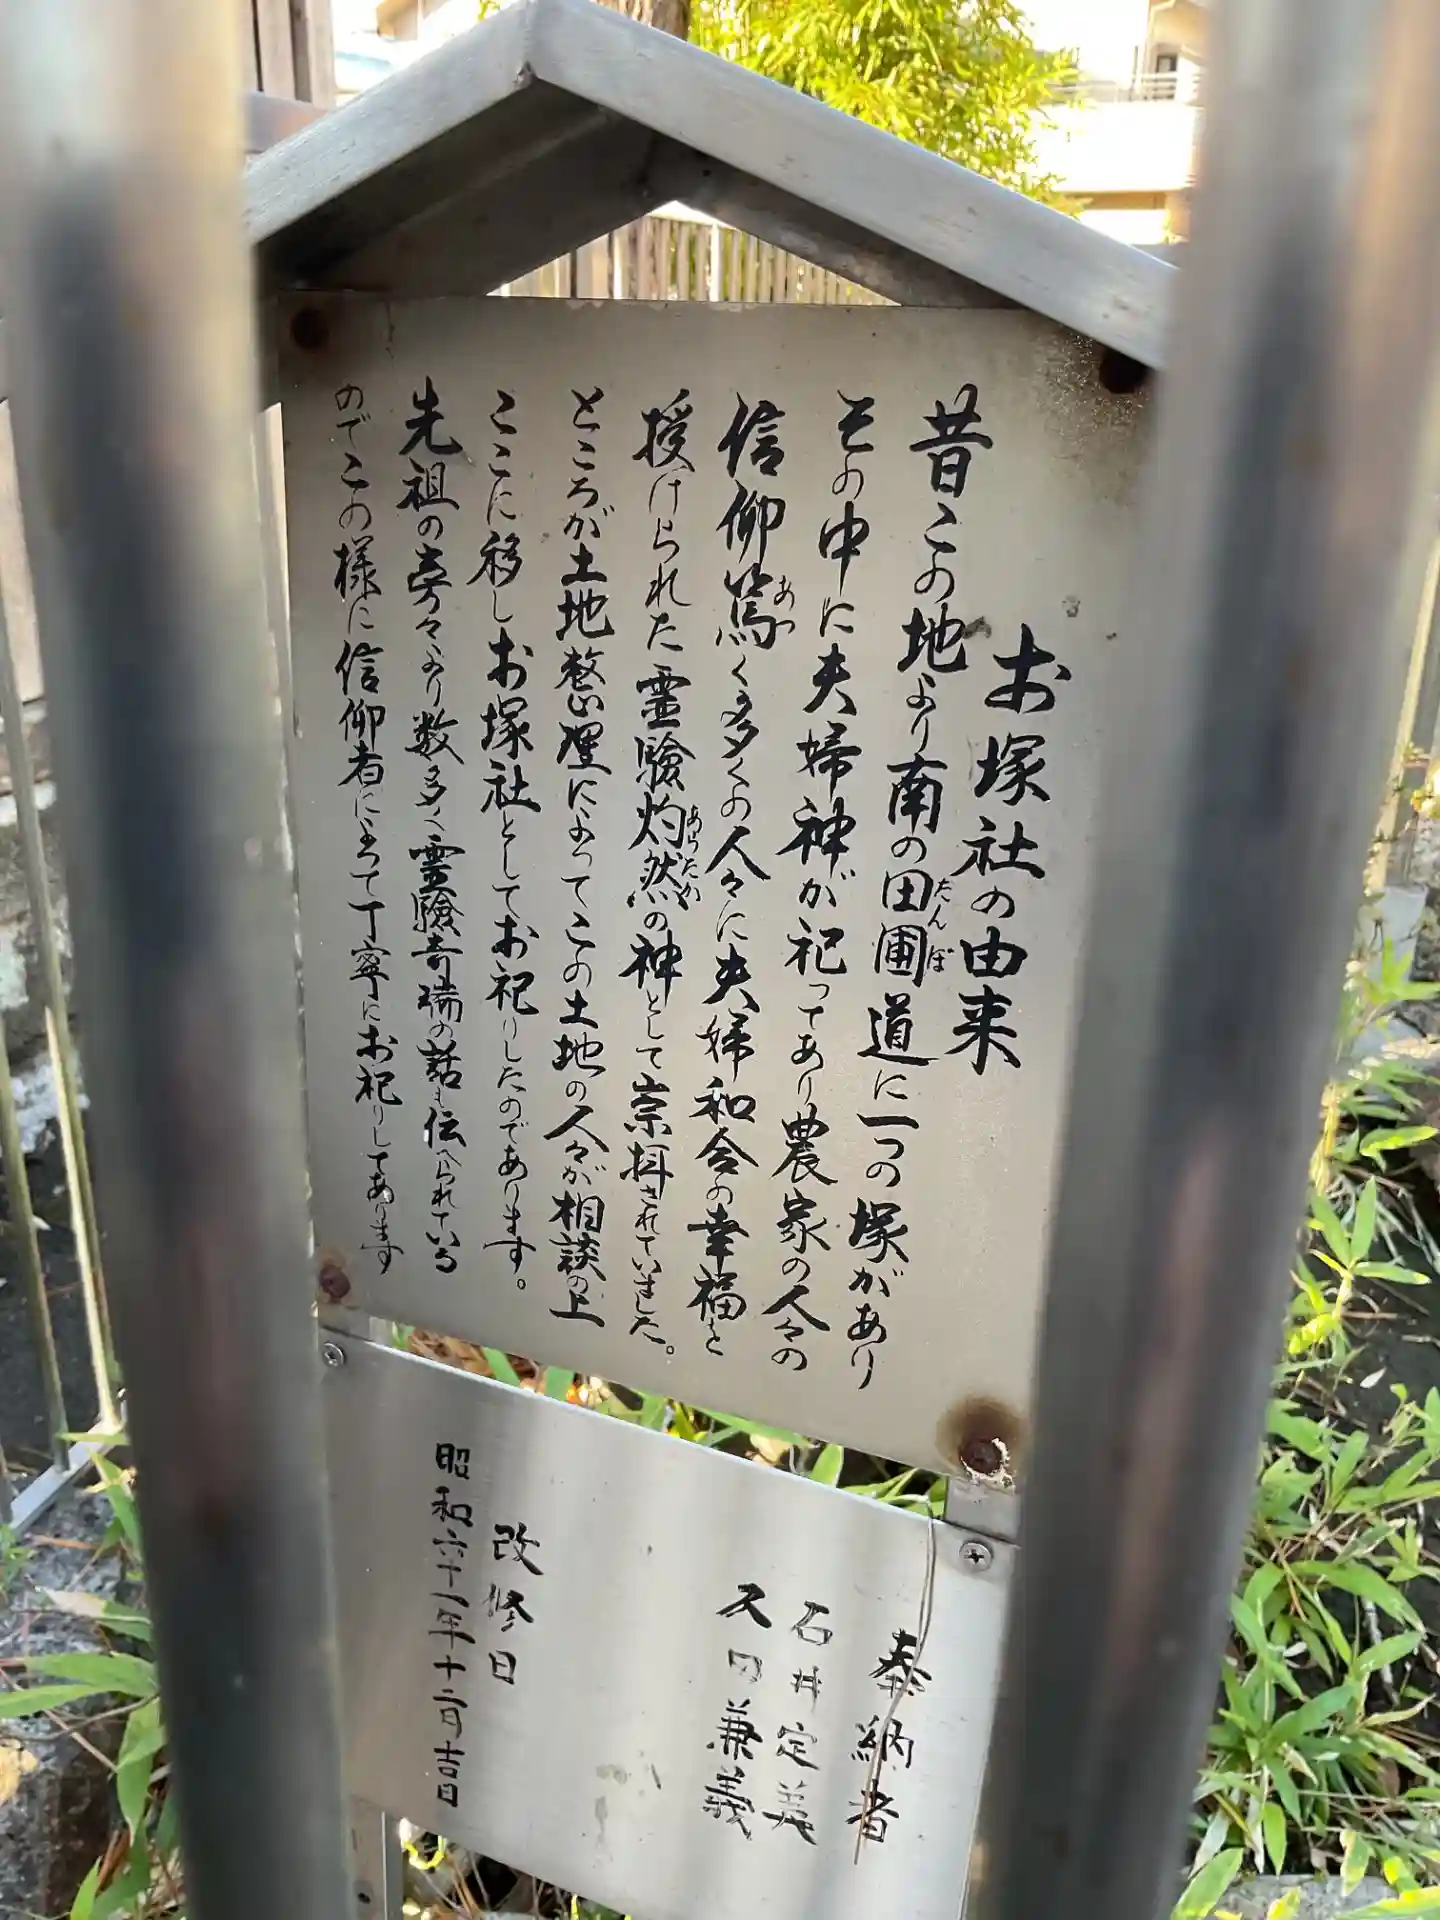 お塚社の由来
昔この地より南の田圃道に一つの塚があり
たんぼ
その中に夫婦神が祀ってあり農家の人々の
信仰篤く多くの人々に夫婦和合の幸福を
あつ
授けられた霊験灼然の神として崇拝されていました。
あらたか
ところが土地整理によってこの土地の人々が相談の上
ここに移しお塚社としてお祀りしたのであります。
先祖の旁々より数多く霊験奇瑞の話も伝へられている
のでこの様に信仰者によって丁寧にお祀りしてあります
奉納者
石井定美
久田兼義
改修日
昭和六十一年十二月吉日